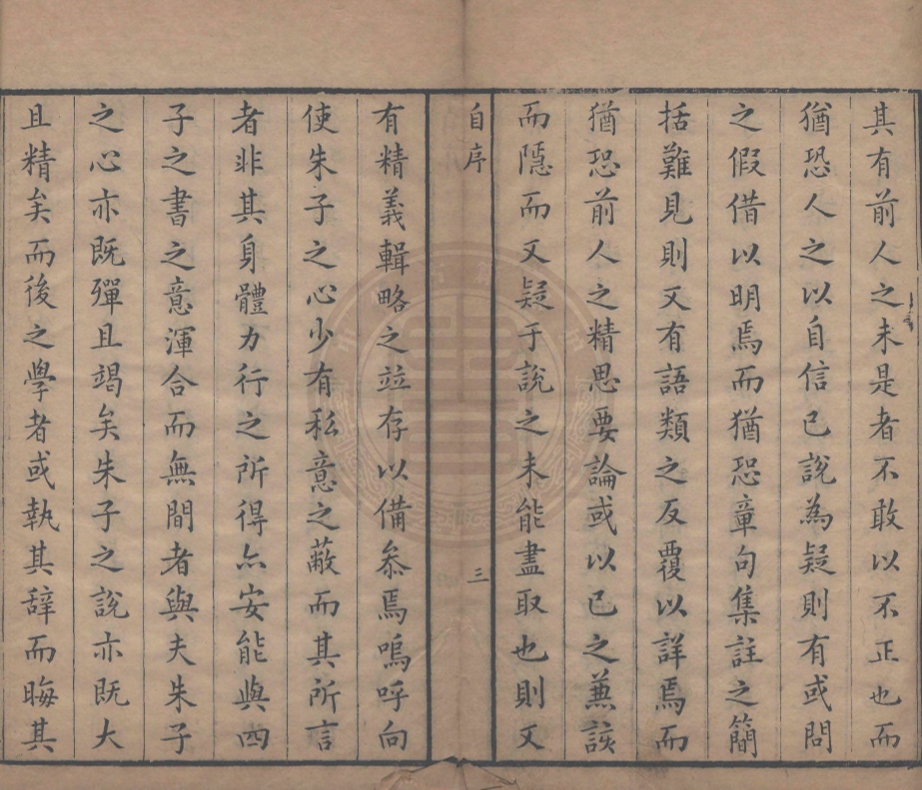 其有前人之未是者不敢以不正也而
猶恐人之以自信已說為疑則有或問
之假借以明焉而猶恐章句集註之簡
括難見則又有語類之反覆以詳焉而
猶恐前人之精思要論或以已之兼該
而隱而又疑于說之未能盡取也則又
自序
三
有精義輯略之並存以備叅焉嗚呼向
使朱子之心少有私意之蔽而其所言
者非其身體力行之所得亦安能與四
子之書之意渾合而無間者與夫朱子
之心亦既殫且竭矣朱子之說亦既大
且精矣而後之學者或執其辭而晦其